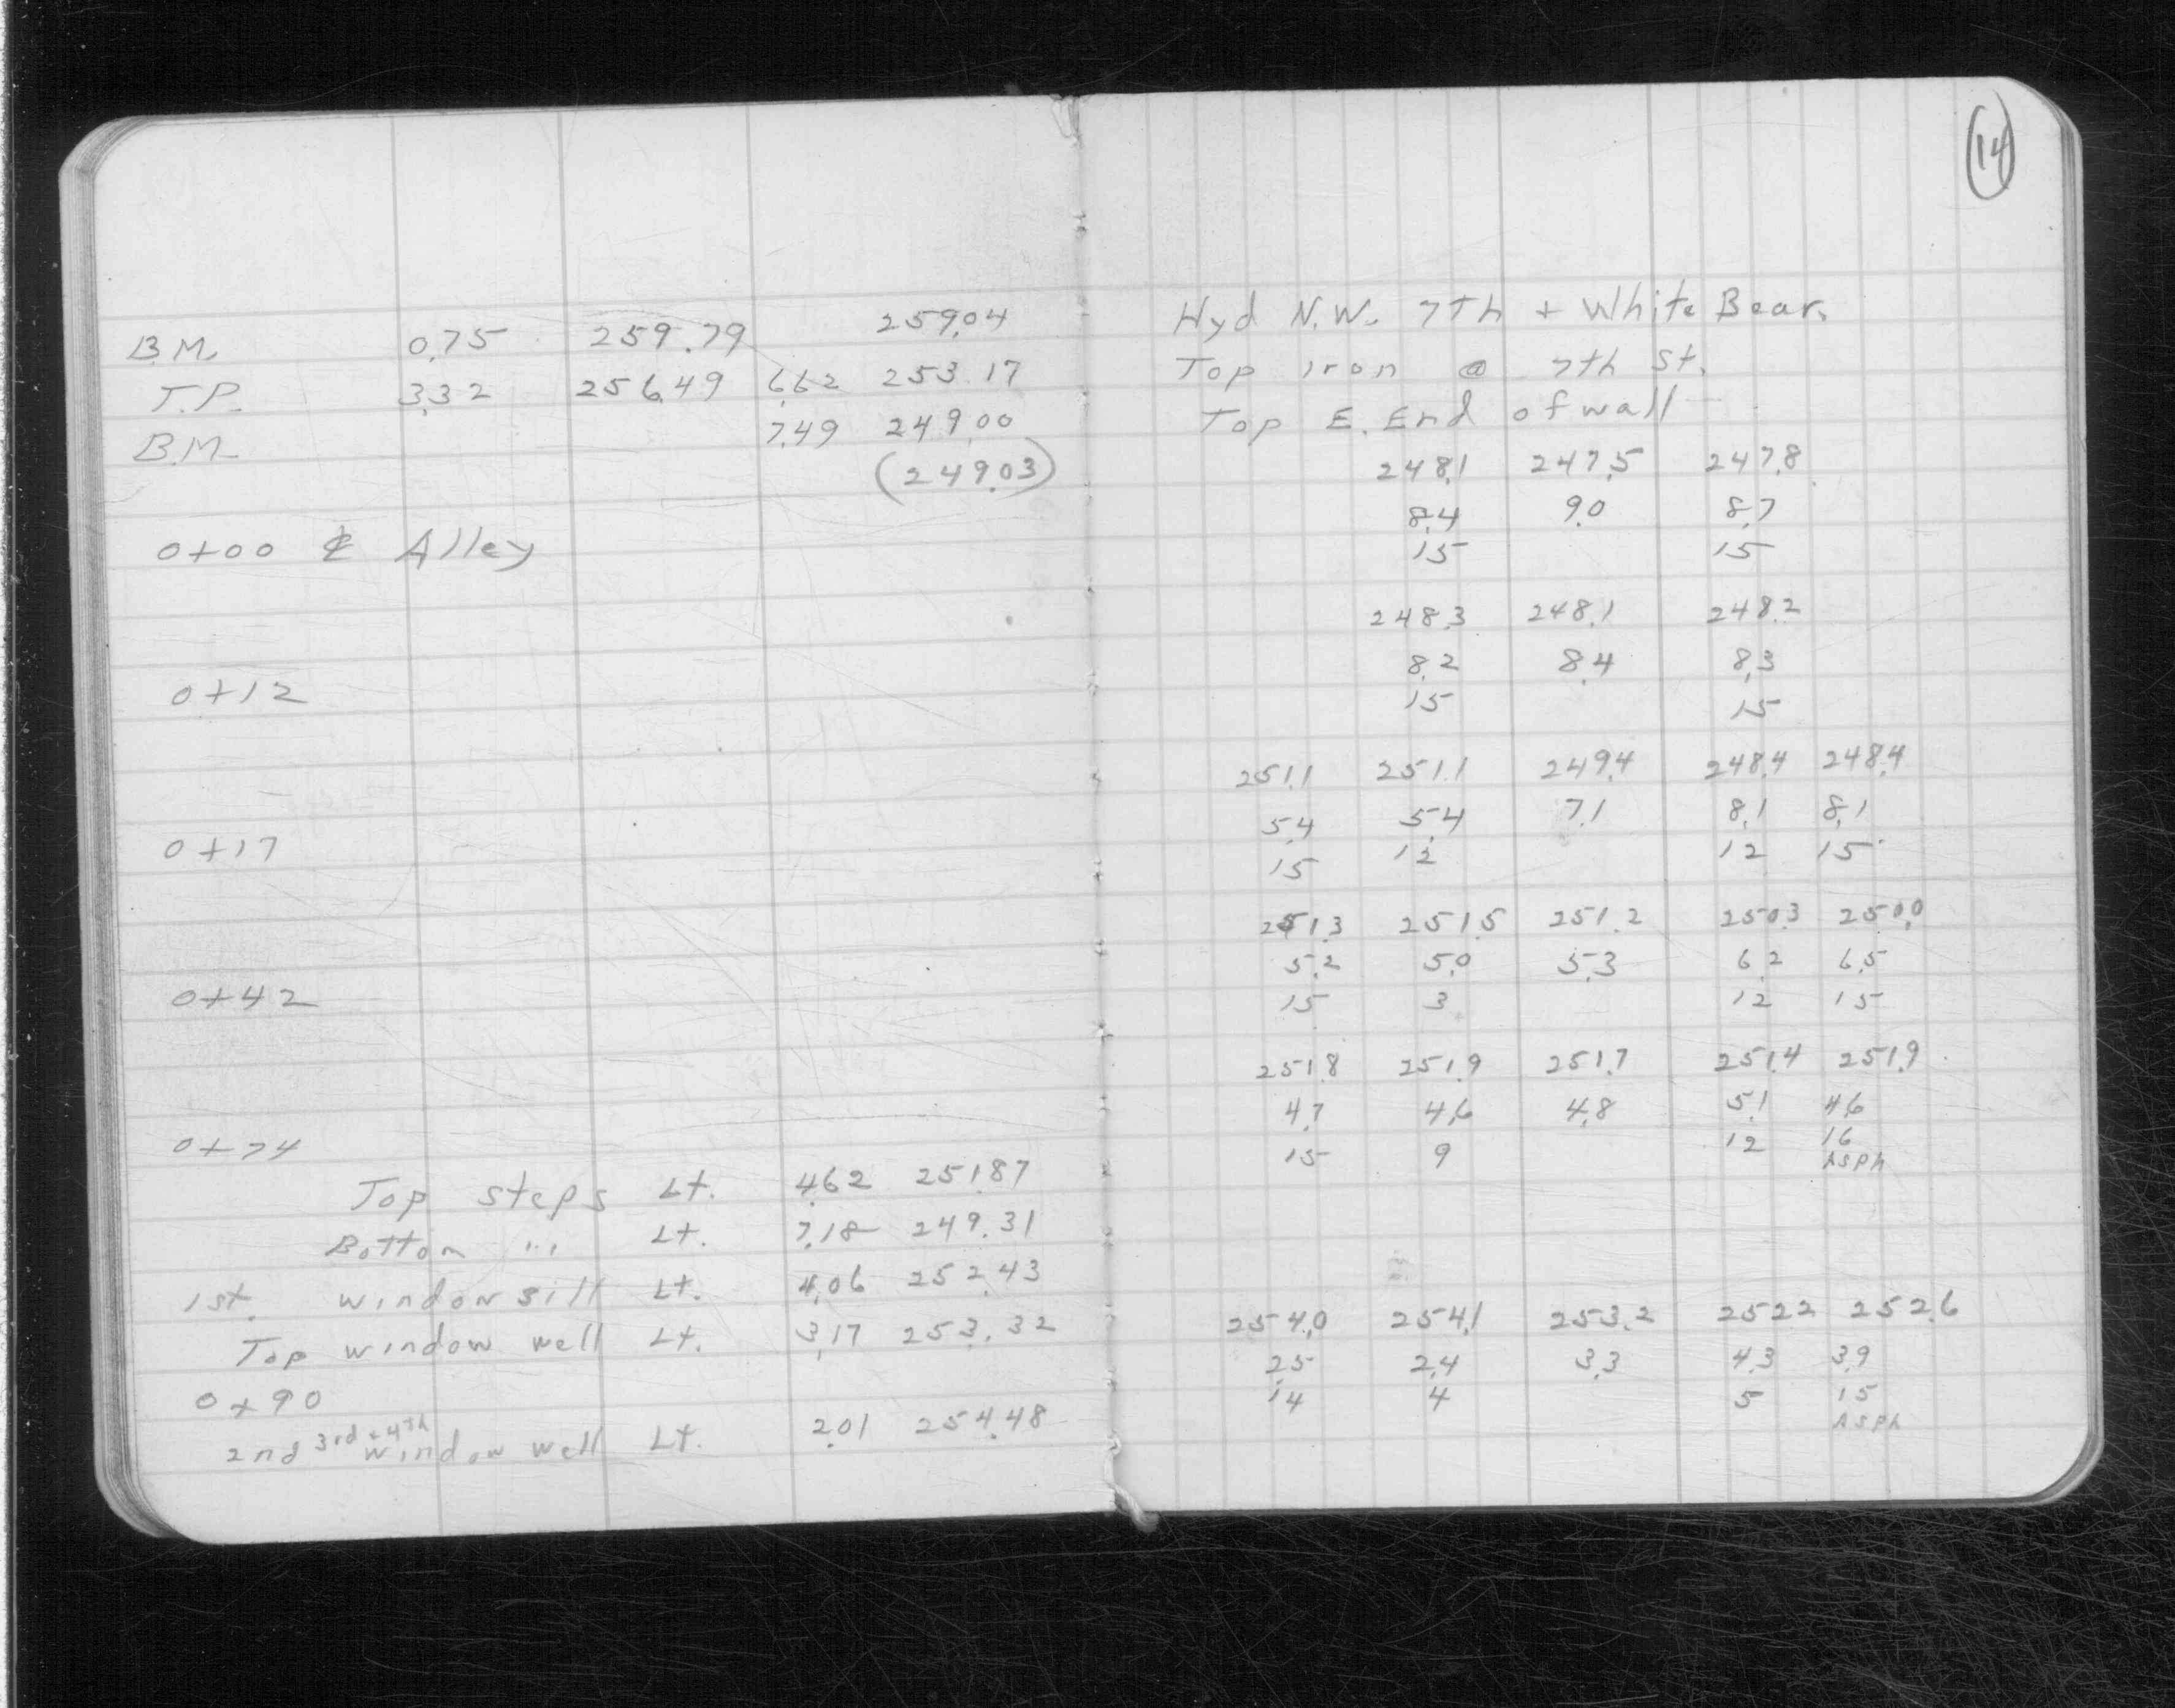 14
B.M. 0.75 259.79 259.04
T.P. 3.32 256.49 6.62 253.17
B.M. 7.49 249.00
(249.03)
0+00 ℄ Alley
0+12
0+17
0+42
0+74
Top steps Lt. 4.62 251.87
Bottom " Lt. 7.18 249.31
1st. window sill Lt. 4.06 252.43
Top window well Lt. 3.17 253.32
0+90
2nd 3rd + 4th window well Lt. 2.01 254.48
Hyd N.W. 7th + White Bear.
Top Iron @ 7th St.
Top E. End of wall
248.1 247.5 247.8
8.4 9.0 8.7
15 15
248.3 248.1 248.2
8.2 8.4 8.3
15 15
251.1 251.1 249.4 248.4 248.4
5.4 5.4 7.1 8.1 8.1
15 12 12 15
251.3 251.5 251.2 250.3 250.0
5.2 5.0 5.3 6.2 6.5
15 3 12 15
251.8 251.9 251.7 251.4 251.9
4.7 4.6 4.8 5.1 4.6
15 9 12 16
Asph
254.0 254.1 253.2 252.2 252.6
2.5 2.4 3.3 4.3 3.9
14 4 5 15
Asph